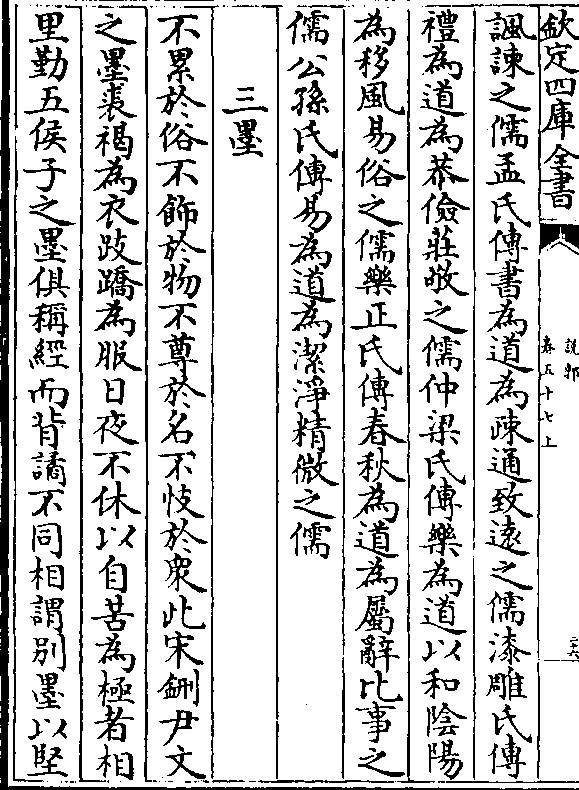 欽定四庫全書
說郛
卷五十七上
諷諫之儒孟氏傳書為道為疎通致遠之儒漆雕氏傳
禮為道為恭儉莊敬之儒仲梁氏傳樂為道以和陰陽
為移風易俗之儒樂正氏傳春秋為道為屬辭比事之
儒公孫氏傳易為道為潔淨精微之儒
三墨
不累於俗不飾於物不尊於名不忮於衆此宋鈃尹文
之墨裘褐為衣跂蹻為服日夜不休以自苦為極者相
里勤五侯子之墨俱稱經而背譎不同相謂別墨以堅